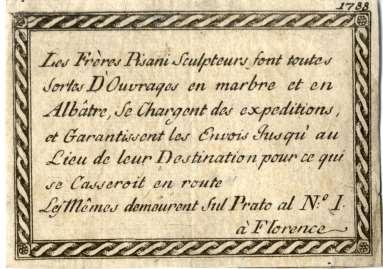 1788
Les Frères Pisani Sculpteurs, font toutes
sortes D'Ouvrages en marbre et en
Albâtre, Se Chargent des expeditions,
et Garantissent les Envois Jusqu'au
Lieu de leur Destination pour ce qui
se Casseroit en route
Les Mêmes demeurent Sul Prato al N.º I.
à Florence